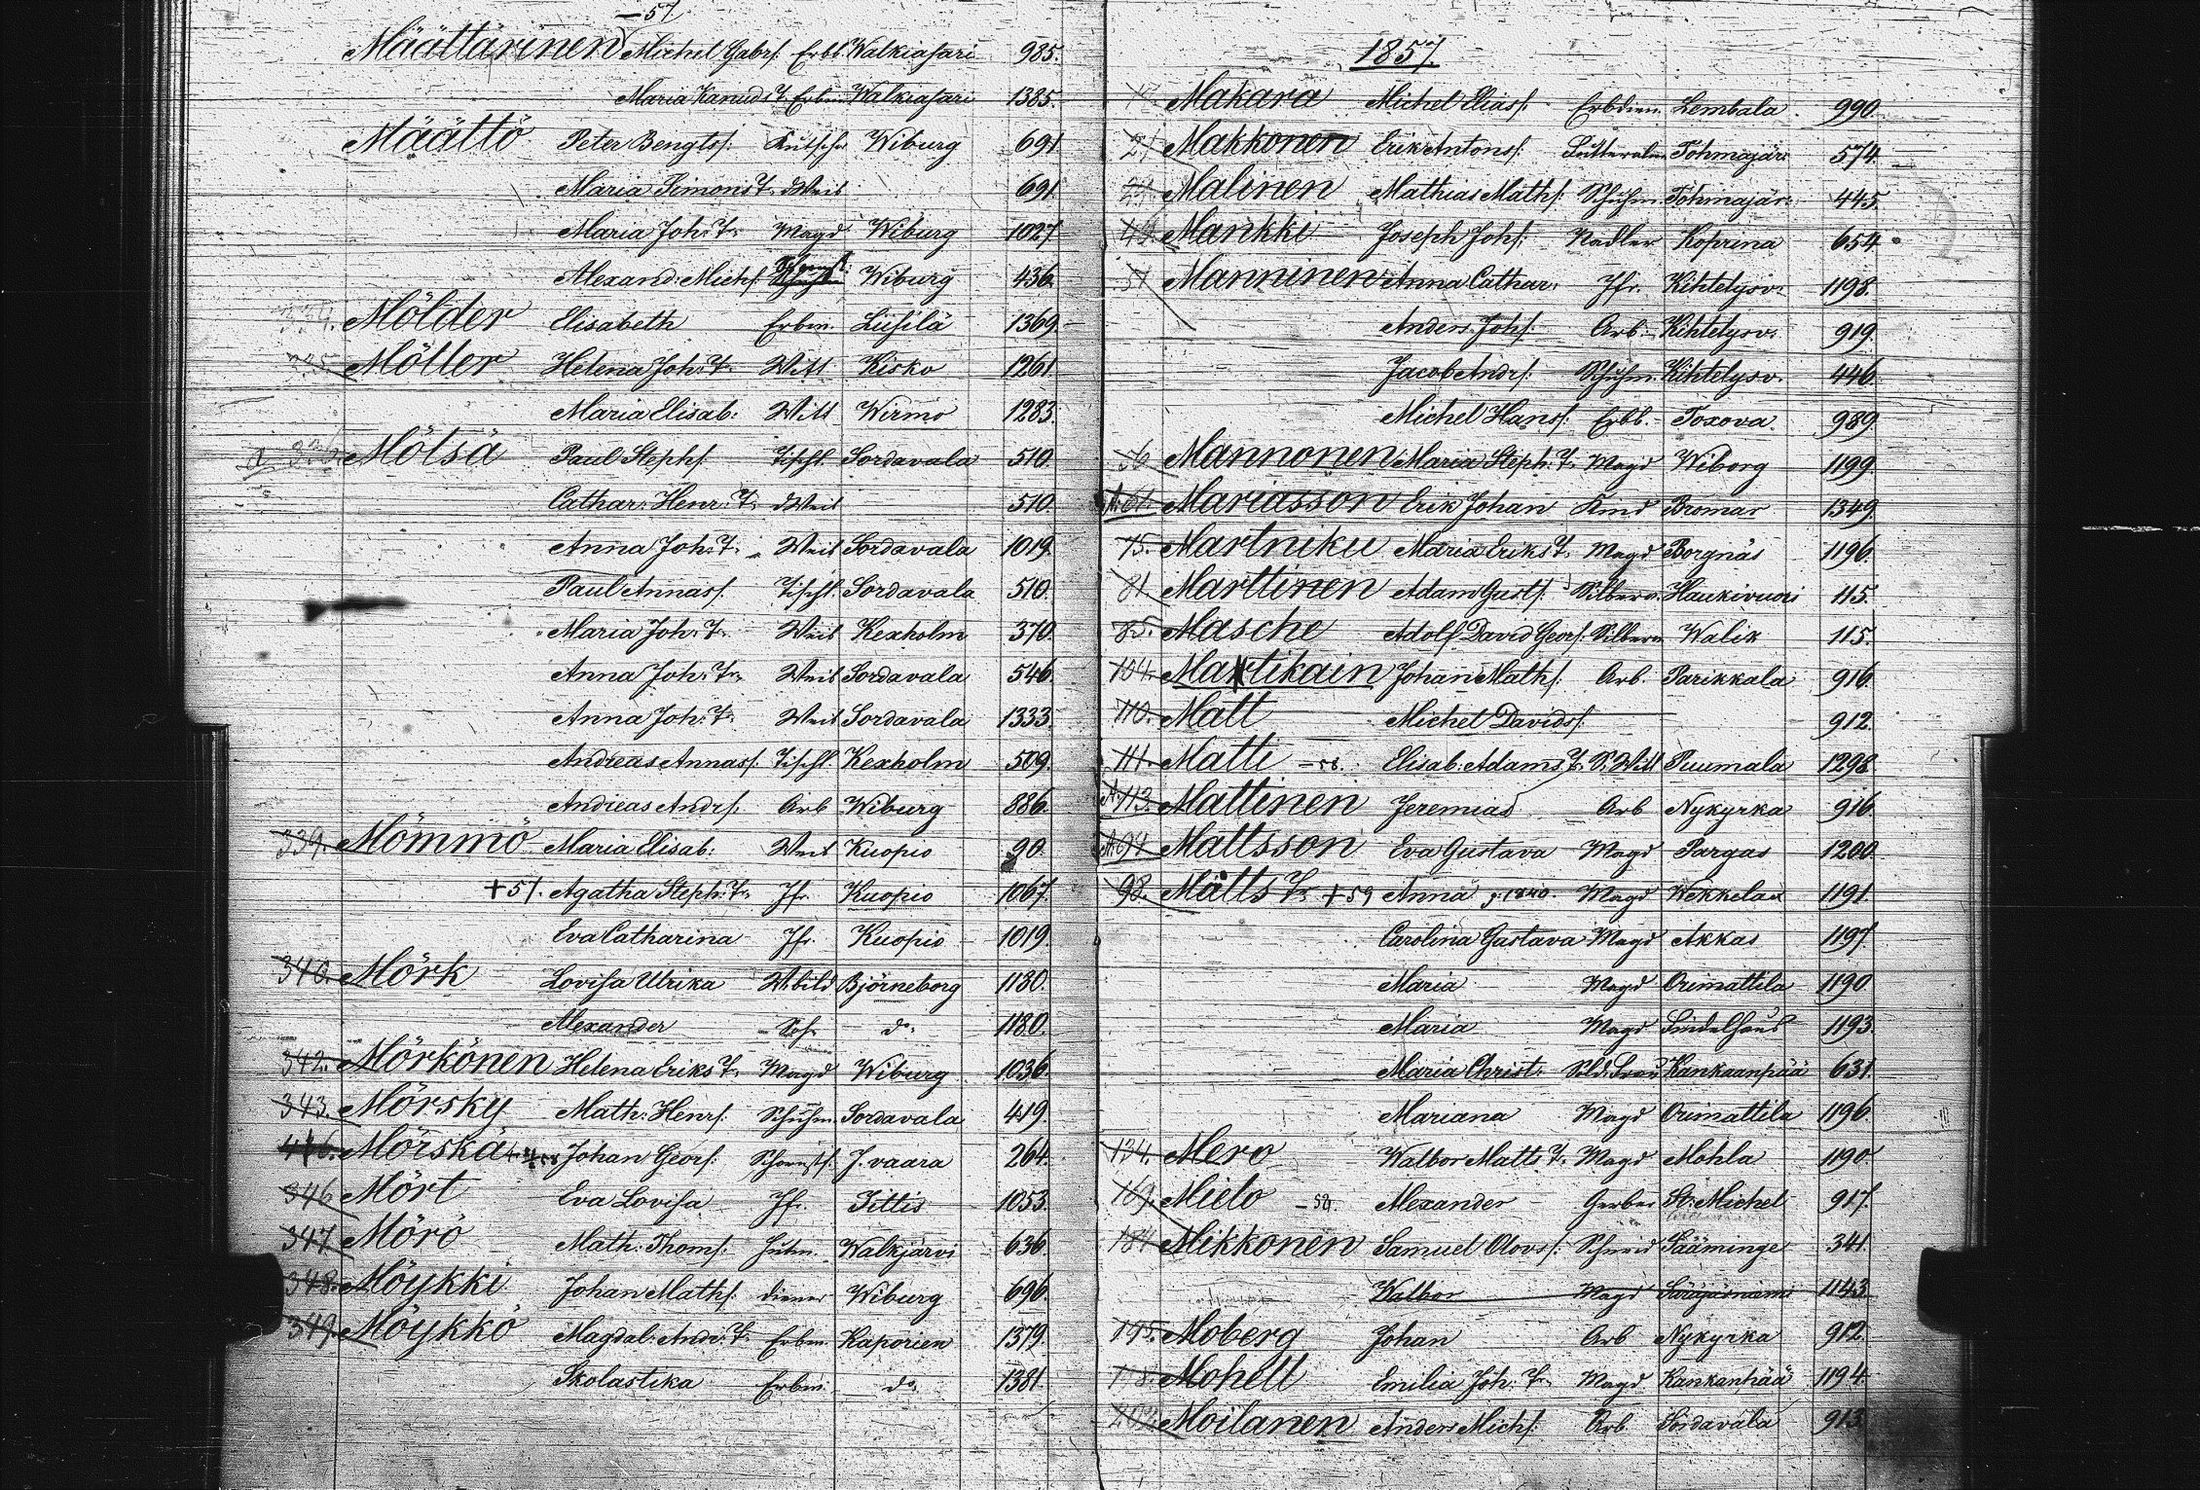 — 57
Määttärinen Michel Gabrs. Erbl. Walkiasari 985.
Maria Kanuds T. Erbm. Walkiasari 1385.
Määttö Peter Bengtss. Kutscher Wiburg 691
Maria Simons T. d Weib 691
Maria Joh: Tr Magd Wiburg 1027
Alexand: Michs. Wiburg 436.
Mölder Elisabeth Erbm. Liisilä 1369.
Möller Helena Joh: T. Witt Kisko 1261.
Maria Elisab: Witt Wirmo 1283.
Mötsä Paul Stephs. Tischl. Sordavala 510
Cathar: Henr: T. d Weib 510.
Anna Joh: T. Weib Sordavala 1019.
Paul Annass. Tischl. Sordavala 510.
Maria Joh: T. Weib Kexholm 370.
Anna Joh: Tr Weib Sordavala 546.
Anna Joh: T. Weib Sordavala 1333.
Andreas Annass. Tischl. Kexholm 509.
Andreas Andrs. Arb Wiburg 886.
339. Mömmö Maria Elisab: Weib Kuopio 90
+57. Agatha Steph: Tr Jfr. Kuopio 1067.
Eva Catharina Jfr. Kuopio 1019.
340. Mörk Lovisa Ulrika Björneborg 1180.
Alexander Soh do: 1180.
342. Mörkönen Helena Eriks T. Magd Wiburg 1036.
343. Mörsky Math: Henrs. Schuhm. Sordavala 419.
Mörskä Johan Geors. Schornstf. J. vaara 264.
346 Mört Eva Lovisa Jfr. Tittis 1053.
347 Mörö Math: Thoms. Walkjärvi 636.
348. Möykki Johan Maths. diener Wiburg 696.
349. Möykkö Magdal: Andr: T. Erbm. Kaporien 1379.
Skolastika Erbm. do: 1381.
1857.
Makara Michel Eliass. Erbdien. Lembala 990.
21 Makkonen Erik Antonss. Tohmajär: 574.
Malinen Mathias Maths. Schuhm. Tohmajär: 445.
Mankki Joseph Johs. Nadler Koprina 654.
51 Manninen Anna Cathar: Jfr. Kihtelysv: 1198.
Anders Johs. Arb. Kihtelysv: 919.
Jacob Andrs. Schuhm. Kihtelysv. 446.
Michel Hanss. Erbl. Toxova. 989.
56 Mannonen Maria Steph: T. Magd Wiborg 1199.
Mariasson Erik Johan Kind Bromar 1349.
75. Martniku Maria Eriks T. Magd Borgnäs 1196.
81 Marttinen Adam Gusts. Silberar. Haukivuori 115.
85. Masche Adolf David Geors. Silberar Walik 115.
104. Martikain Johan Maths. Arb. Parikkala 916.
110. Matt Michel Davidss. 912.
111. Matti —58. Elisab: Adams T. S. Witt Puumala 1298.
A. 113. Mattinen Jeremias Arb Nykyrka 916.
A. 94 Mattsson Eva Gustava Magd Pargas 1200.
98. Matts Tr +59 Anna g. 1840. Magd Wekkelax 1191.
Carolina Gustava Magd Akkas 1197.
Maria Magd Orimattila 1190.
Maria Magd 1193.
Maria Christ: Sold. Frau Kankaanpää 631.
Mariana Magd Orimattila 1196.
134. Mero Walbor Matts T. Magd Mohla 1190.
169. Mielo —58. Alexander Gerber St: Michel 917.
184 Mikkonen Samuel Olovss. Schneid Sääminge 341.
Walbor Magd 1143.
195. Moberg Johan Arb Nykyrka 912.
Mohell Emilia Joh: Tr Magd Kankanpää 1194.
202. Moilanen Anders Michs. Arb. Sordavala 913.